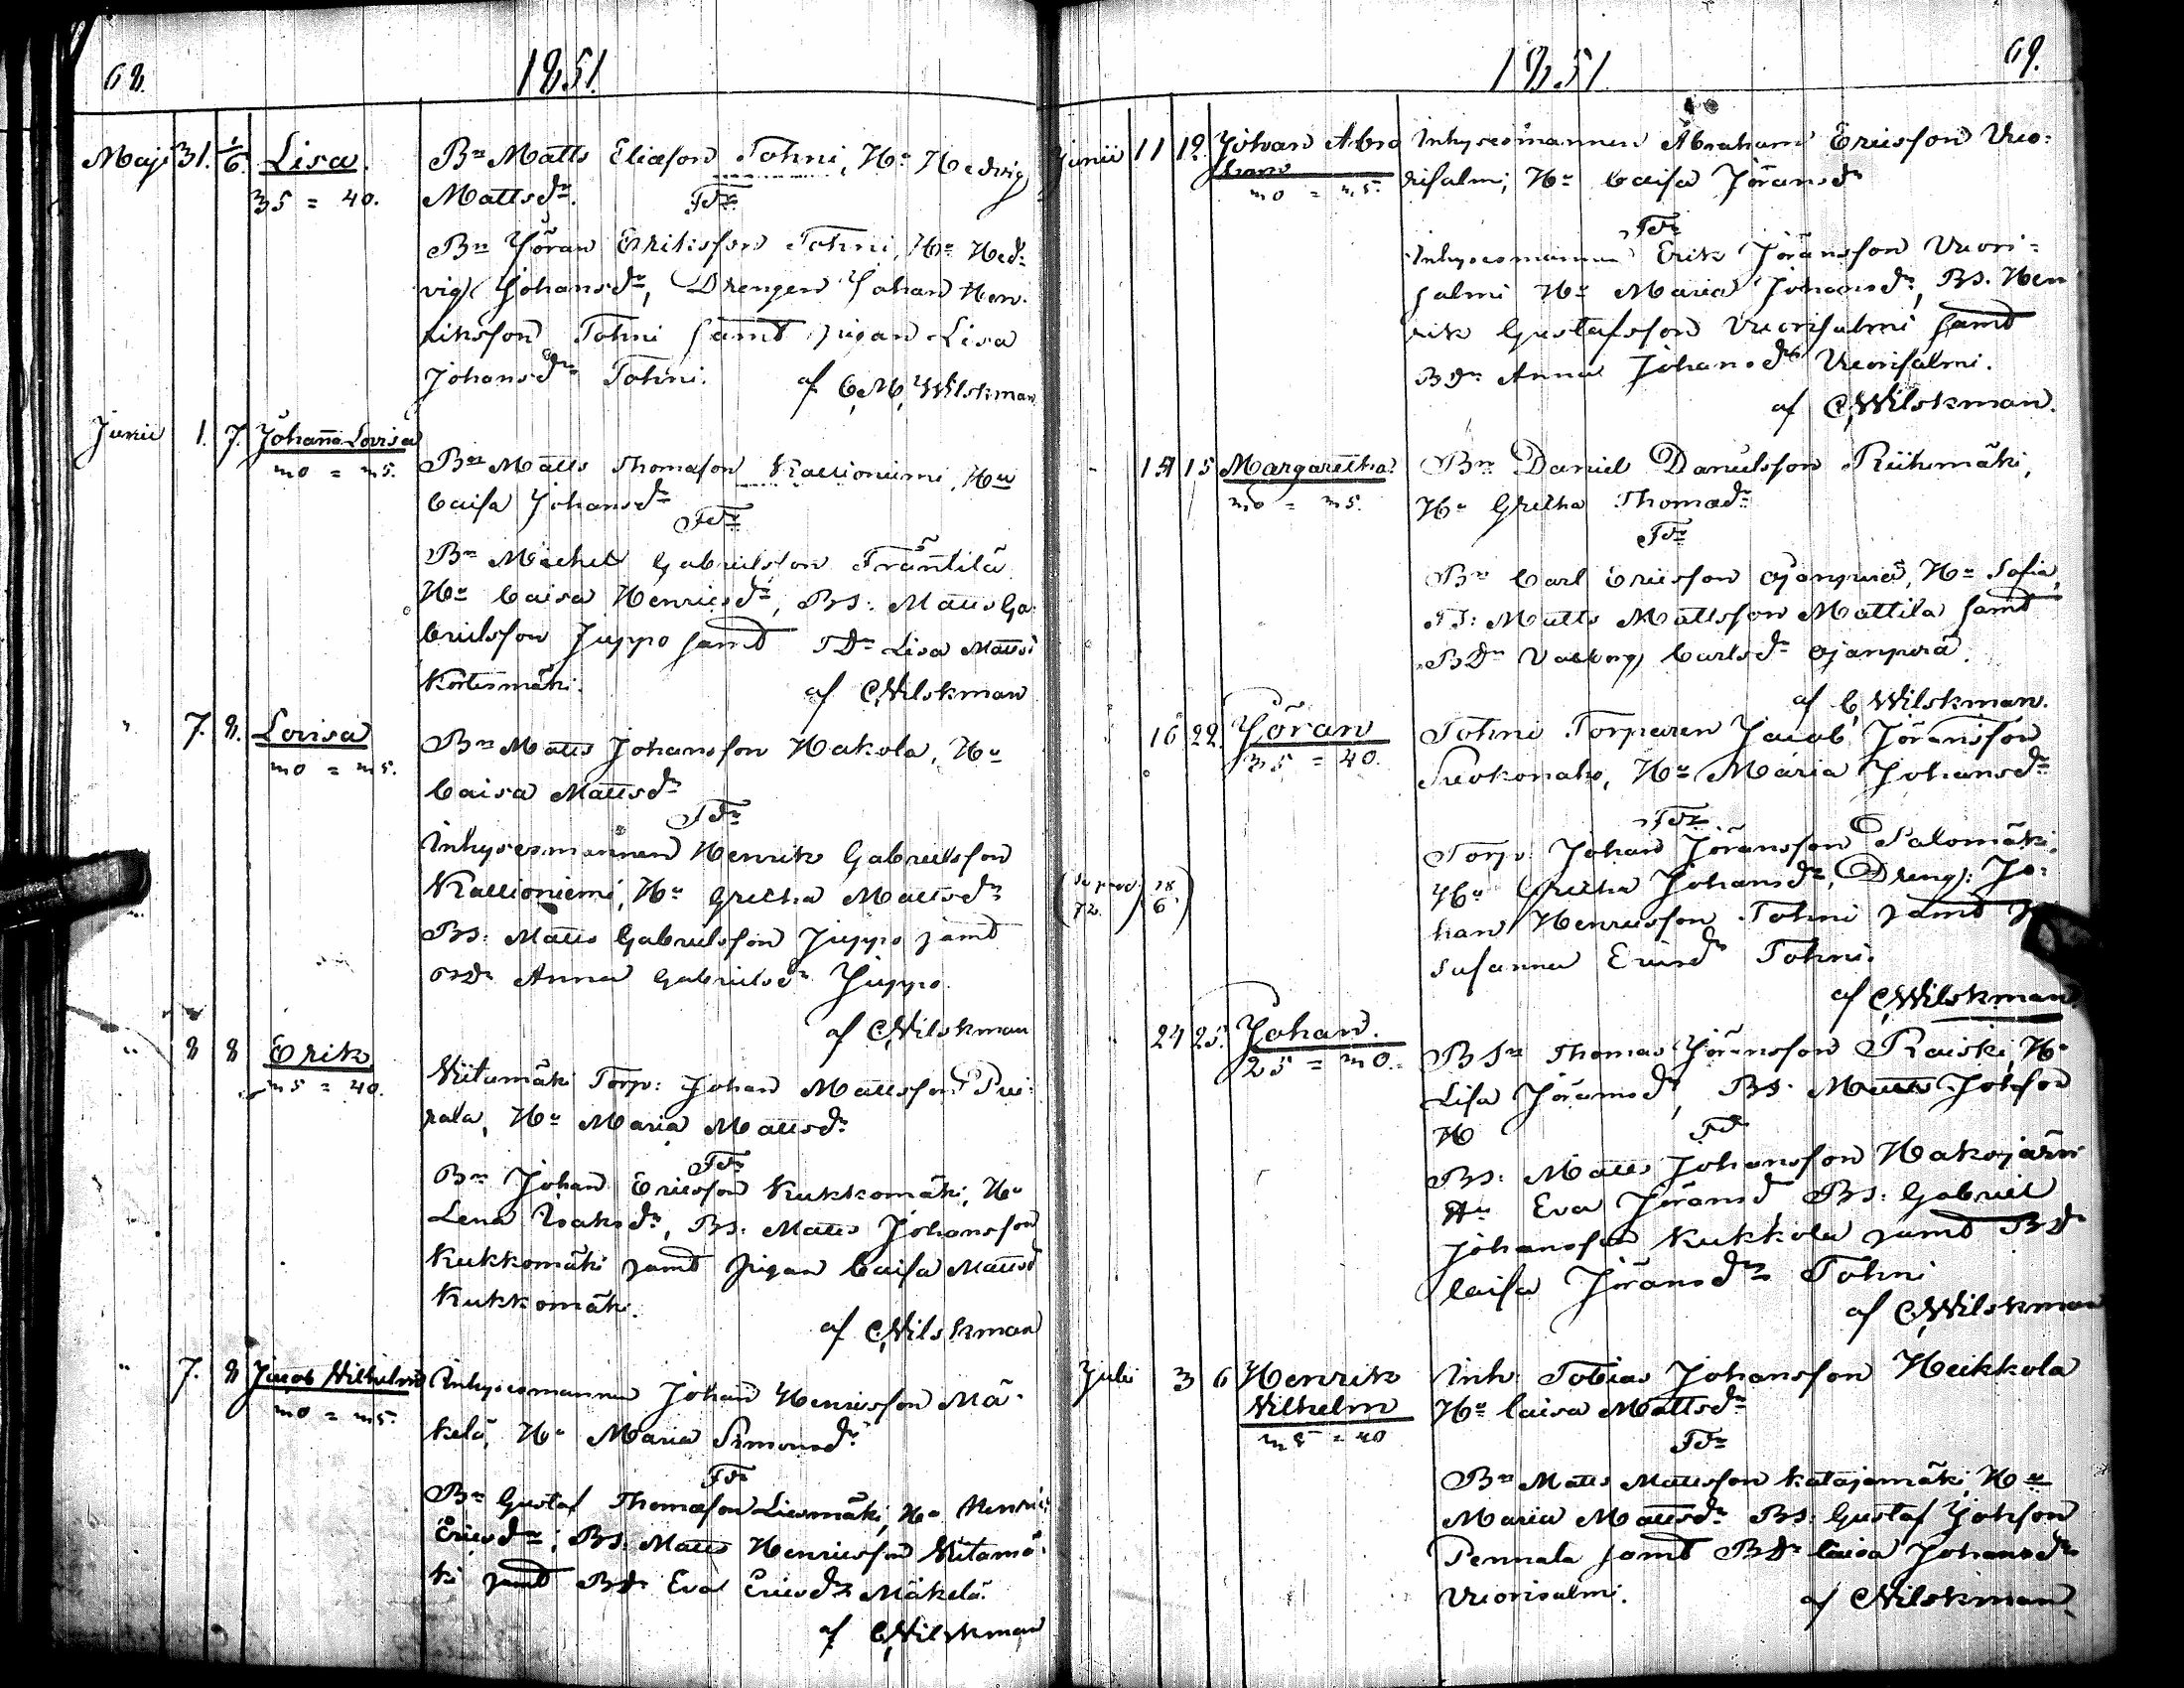 68. 1851.
Maji 31. 1/6. Lisa. Bn Matts Eliasson Tohni, Hu Hedvig
35 = 40. Mattsdr.
Tdr
Bn Jöran Eriksson Tohni, Hu Hed-
vig Johansdr, Drengen Johan Hen-
riksson Tohni samt pigan Lisa
Johansdr Tohni. af C.M. Wilskman
Junii 1. 7. Johanna Lovisa
30 = 35. Bn Matts Thomasson Kallioniemi, Hu
Caisa Johansdr
Tdr
Bn Michel Gabrielsson Träntilä
Hu Caisa Henricsdr, BS: Matts Ga-
brielsson Juppo samt TDr Lisa Mattsd
Kortesmäki. af C Wilskman
" 7. 8. Lovisa Bn Matts Johansson Hakola, Hu
30 = 35. Caisa Mattsdr
Tdr
Inhysesmannen Henrik Gabrielsson
Kallioniemi, Hu Gretha Mattsdr
BS: Matts Gabrielsson Juppo samt
BDr Anna Gabrielsdr Juppo.
af C Wilskman
" 8 8 Erik
35 = 40. Viitamäki Torp: Johan Mattsson
Hu Maria Mattsdr
Tdr
Bn Johan Ericsson Kukkomäki, Hu
Lena Isaksdr, BS: Matts Johansson
Kukkomäki samt pigan Caisa Mattsd
Kukkomäki.
af C Wilskman
" 7. 8 Jacob Wilhelm Inhysesmannen Johan Henricsson Mä-
30 = 35. kelä, Hu Maria Simonsdr
Tdr
Bn Gustaf Thomasson Liesmäki, Hu
Ericsdr, BS: Matts Henricsson Viitamä-
ki samt BDr Eva Ericsdr Mäkelä.
af C Wilskman
1851. 69.
Junii 11 12. Johan Abra Inhysesmannen Abraham Ericsson Vuo-
ham risalmi, Hu Caisa Jöransdr
30 = 35.
Tdr
Inhysesmannen Erik Jöransson Vuori-
salmi Hu Maria Johansdr, BS. Hen
rik Gustafsson Vuorisalmi samt
BDr Anna Johansdr Vuorisalmi.
af C Wilskman.
15 Margaretha Bn Daniel Danielsson Riihimäki,
30 = 35. Hu Gretha Thomædr
Tdr
Bn Carl Ericsson Ojanperä, Hu Sofia,
TS: Matts Mattsson Mattila samt
BDr Valborg Carlsdr Ojanperä.
af C Wilskman.
16 22. Jöran Tohni Torparen Jacob Jöransson
35 = 40. Hu Maria Johansdr
Tdr
Torp: Johan Jöransson Salomäki,
Hu Gretha Johansdr, Dreng: Jo-
han Henricsson Tohni samt
Susanna Ericsdr Tohni.
af C Wilskman
24 25. Johan. BSn Thomas Jöransson Raiski, Hu
25 = 30. Lisa Jöransdr, BS. Matts Johsson
H Tdr
BS: Matts Johansson Hakojärvi
Hu Eva Jöransd BS: Gabriel
Johansson Kukkola samt BDr
Caisa Jöransdr Tohni
af C Wilskman
Juli 3 6 Henrik Inh: Tobias Johansson Heikkola
Wilhelm Hu Caisa Mattsdr
35 = 40
Tdr
Bn Matts Mattsson Katajamäki, Hu
Maria Mattsdr BS: Gustaf Johsson
Pennala samt BDr Caisa Johansdr
Vuorisalmi. af C Wilskman.